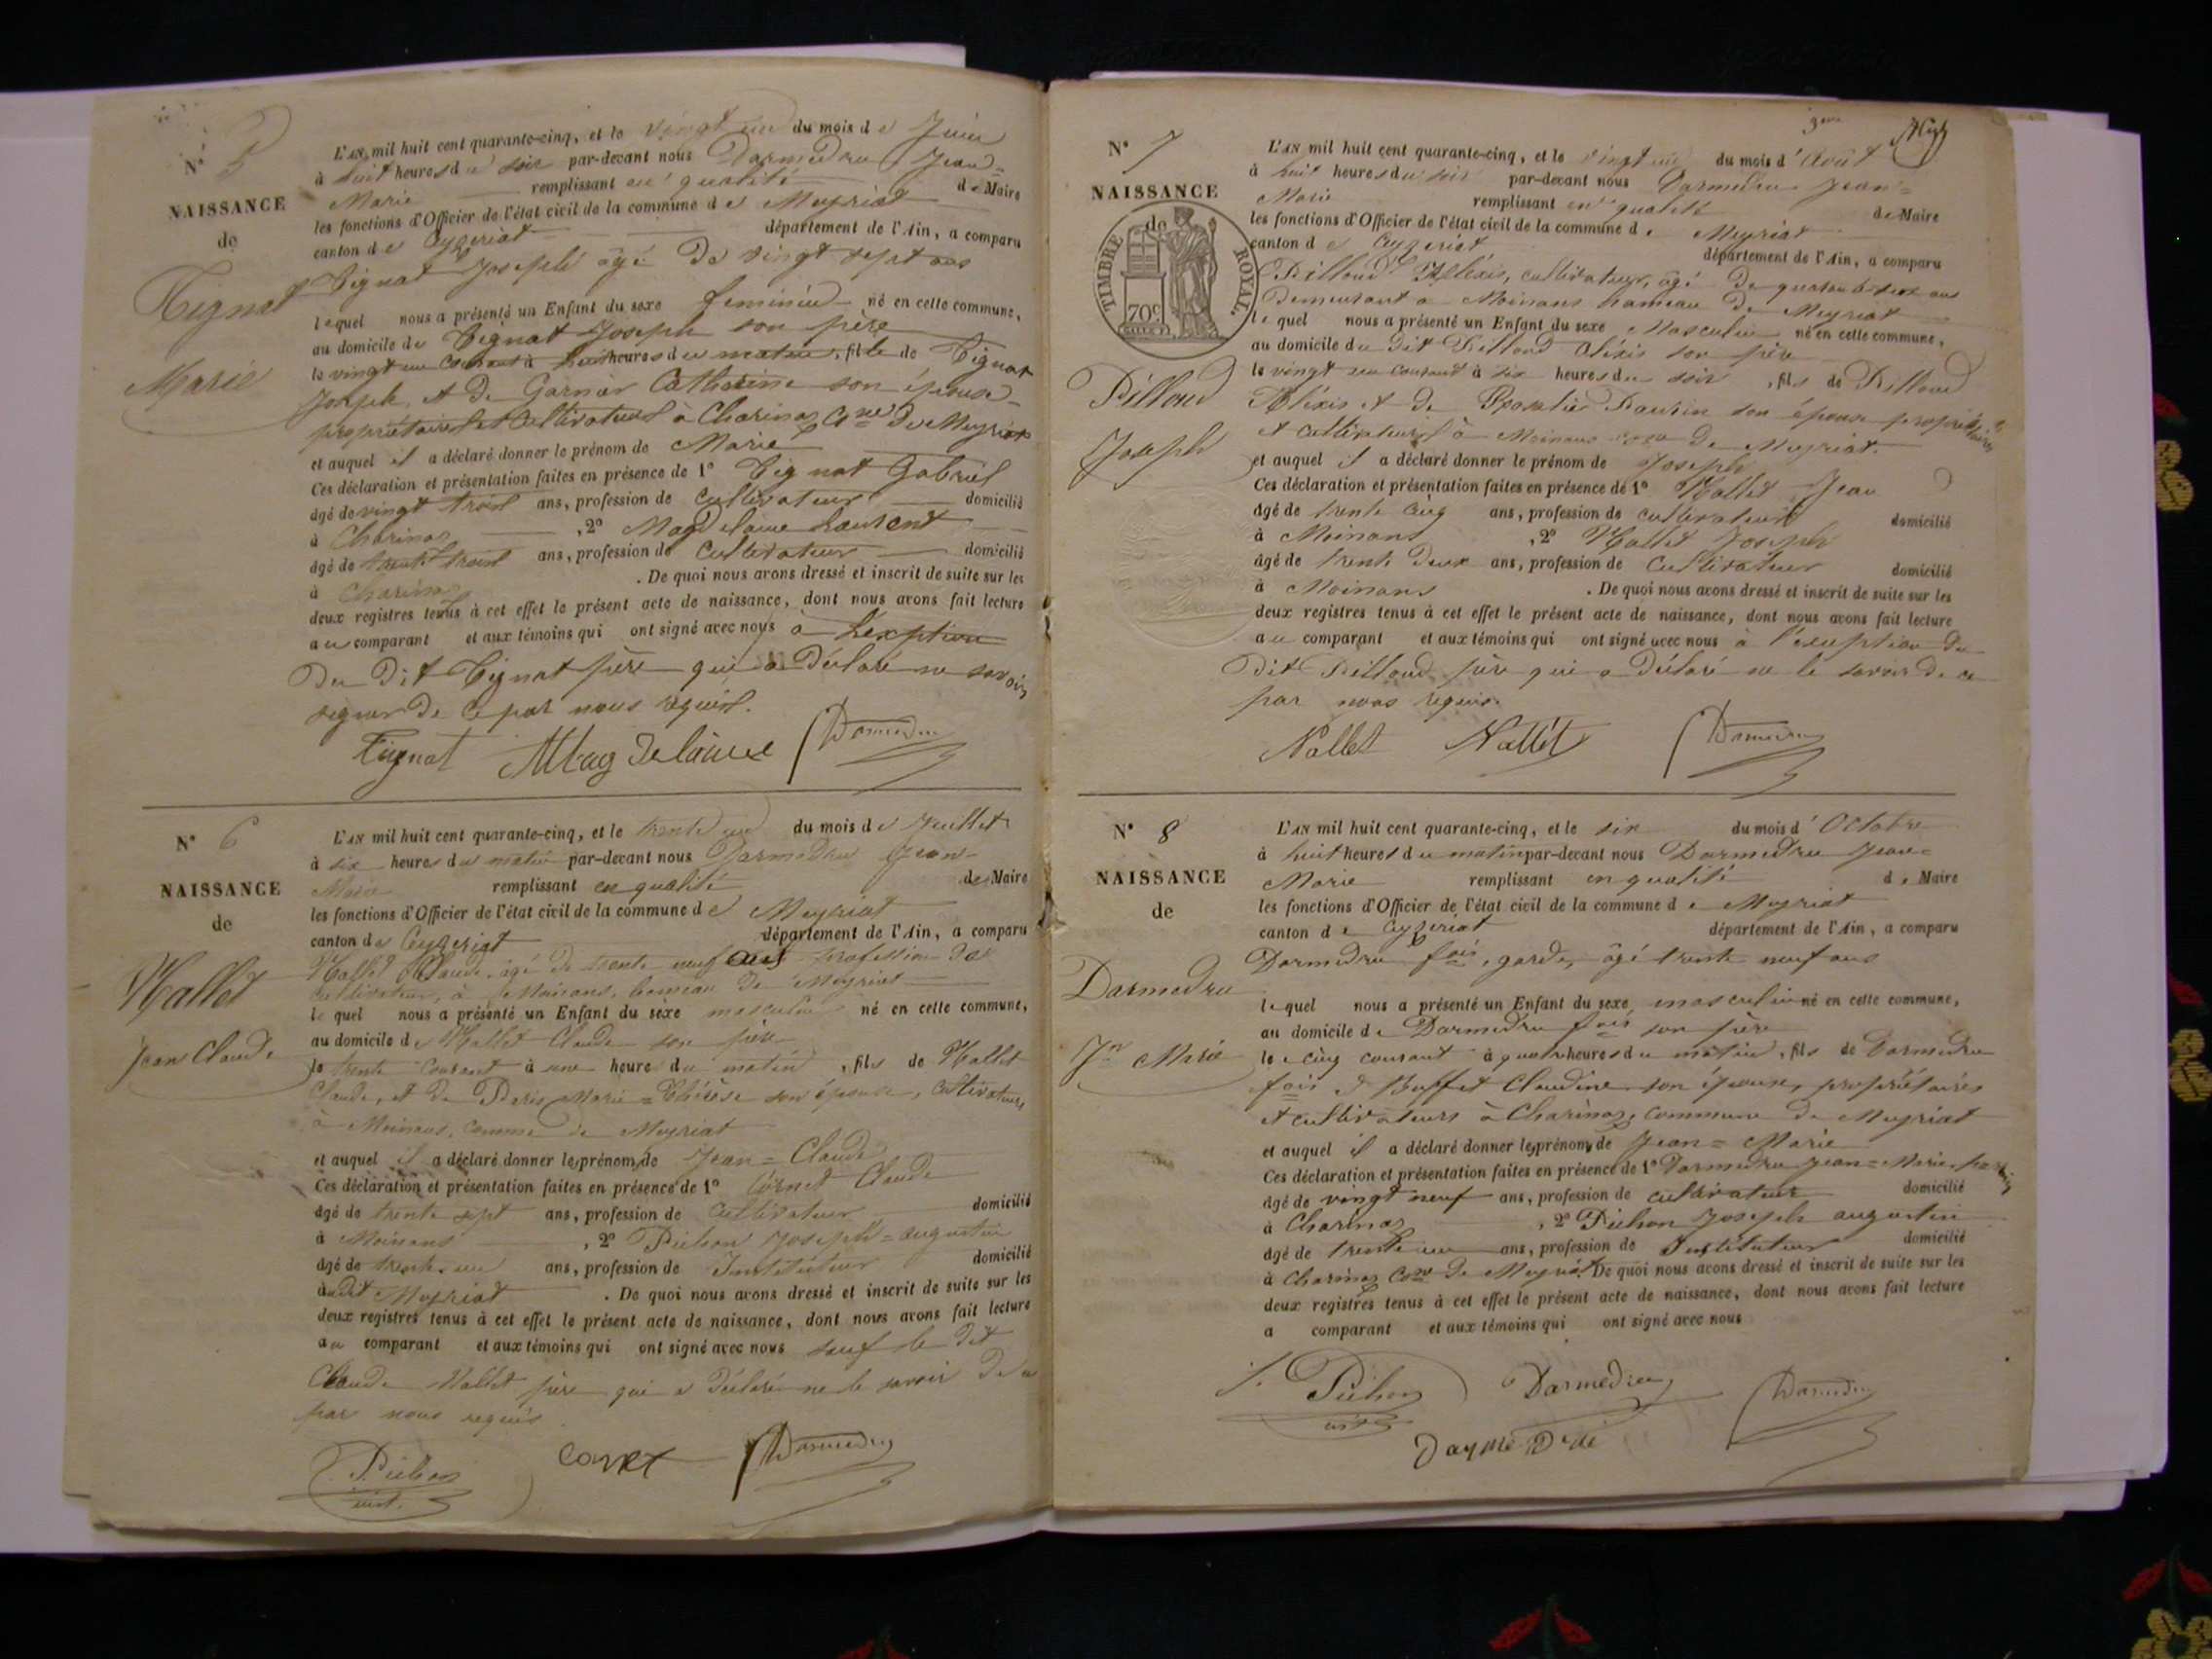 N° 5
NAISSANCE
de
Tignat
Marie
L'AN mil huit cent quarante-cinq, et le vingt un du mois de Juin
à huit heures du soir par-devant nous Darmedru Jean=
Marie remplissant en qualité de Maire
les fonctions d'Officier de l'état civil de la commune de Meyriat
canton de Ceyzeriat département de l'Ain, a comparu
Tignat Joseph âgé de vingt sept ans
lequel nous a présenté un Enfant du sexe feminin né en cette commune,
au domicile de Tignat Joseph son père
le vingt un courant à heures du matin, fille de Tignat
Joseph et de Garnier Catherine son épouse
propriétaires et cultivateurs à Charinaz Cne de Meyriat
et auquel il a déclaré donner le prénom de Marie
Ces déclaration et présentation faites en présence de 1° Tignat Gabriel
âgé de vingt trois ans, profession de cultivateur domicilié
à Charinaz , 2° Magdelaine Laurent
âgé de trente trois ans, profession de cultivateur domicilié
à Charinaz . De quoi nous avons dressé et inscrit de suite sur les
deux registres tenus à cet effet le présent acte de naissance, dont nous avons fait lecture
au comparant et aux témoins qui ont signé avec nous à l'exeption
du dit Tignat père qui a déclaré ne savoir
signer de ce par nous requis.
Tignat Magdelaine Darmedru
N° 6
NAISSANCE
de
Nallet
Jean Claude
L'AN mil huit cent quarante-cinq, et le trente un du mois de Juillet
à six heures du matin par-devant nous Darmedru Jean=
Marie remplissant en qualité de Maire
les fonctions d'Officier de l'état civil de la commune de Meyriat
canton de Ceyzeriat département de l'Ain, a comparu
Nallet Claude, âgé de trente neuf ans profession de
cultivateur, à Moinans, hameau de Meyriat
lequel nous a présenté un Enfant du sexe masculin né en cette commune,
au domicile de Nallet Claude son père
le trente courant à une heure du matin, fils de Nallet
Claude, et de Marie=Thérèse son épouse, cultivateurs
à Moinans, commune de Meyriat
et auquel il a déclaré donner les prénoms de Jean=Claude
Ces déclaration et présentation faites en présence de 1° Cornet Claude
âgé de trente sept ans, profession de cultivateur domicilié
à Moinans , 2° Pichon Joseph=augustin
âgé de trente un ans, profession de Instituteur domicilié
à dit Meyriat . De quoi nous avons dressé et inscrit de suite sur les
deux registres tenus à cet effet le présent acte de naissance, dont nous avons fait lecture
au comparant et aux témoins qui ont signé avec nous sauf le dit
Claude Nallet père qui a déclaré ne le savoir de ce
par nous requis
Pichon inst. Cornet Darmedru
3me
N° 7
NAISSANCE
de
TIMBRE ROYAL.
70c.
Pilloud
Joseph
L'AN mil huit cent quarante-cinq, et le vingt un du mois d'Août
à huit heures du soir par-devant nous Darmedru Jean=
Marie remplissant en qualité de Maire
les fonctions d'Officier de l'état civil de la commune de Meyriat
canton de Ceyzeriat département de l'Ain, a comparu
Pilloud Aléxis, cultivateur, âgé de quarante ans
demeurant à Moinans hameau de Meyriat
lequel nous a présenté un Enfant du sexe Masculin né en cette commune,
au domicile du dit Pilloud Aléxis son père
le vingt un courant à six heures du soir, fils de Pilloud
Aléxis et de son épouse propriétaires
et cultivateurs à Moinans de Meyriat.
et auquel il a déclaré donner le prénom de Joseph
Ces déclaration et présentation faites en présence de 1° Nallet Jean
âgé de trente cinq ans, profession de cultivateur domicilié
à Moinans , 2° Nallet Joseph
âgé de trente deux ans, profession de cultivateur domicilié
à Moinans . De quoi nous avons dressé et inscrit de suite sur les
deux registres tenus à cet effet le présent acte de naissance, dont nous avons fait lecture
au comparant et aux témoins qui ont signé avec nous à l'exeption du
dit Pilloud père qui a déclaré ne le savoir de ce
par nous requis
Nallet Nallet Darmedru
N° 8
NAISSANCE
de
Darmedru
Jn Marie
L'AN mil huit cent quarante-cinq, et le six du mois d'Octobre
à huit heures du matin par-devant nous Darmedru Jean=
Marie remplissant en qualité de Maire
les fonctions d'Officier de l'état civil de la commune de Meyriat
canton de Ceyzeriat département de l'Ain, a comparu
Darmedru fois, garde, âgé trente neuf ans
lequel nous a présenté un Enfant du sexe masculin né en cette commune,
au domicile de Darmedru fois son père
le cinq courant à quatre heures du matin, fils de Darmedru
fois & Buffet Claudine son épouse, propriétaires
et cultivateurs à Charinaz, commune de Meyriat
et auquel il a déclaré donner les prénoms de Jean=Marie
Ces déclaration et présentation faites en présence de 1° Darmedru Jean=Marie
âgé de vingt neuf ans, profession de cultivateur domicilié
à Charinaz , 2° Pichon Joseph augustin
âgé de trente un ans, profession de Instituteur domicilié
à Charinaz Cne de Meyriat. De quoi nous avons dressé et inscrit de suite sur les
deux registres tenus à cet effet le présent acte de naissance, dont nous avons fait lecture
a comparant et aux témoins qui ont signé avec nous
Pichon inst. Darmedru Darmedru